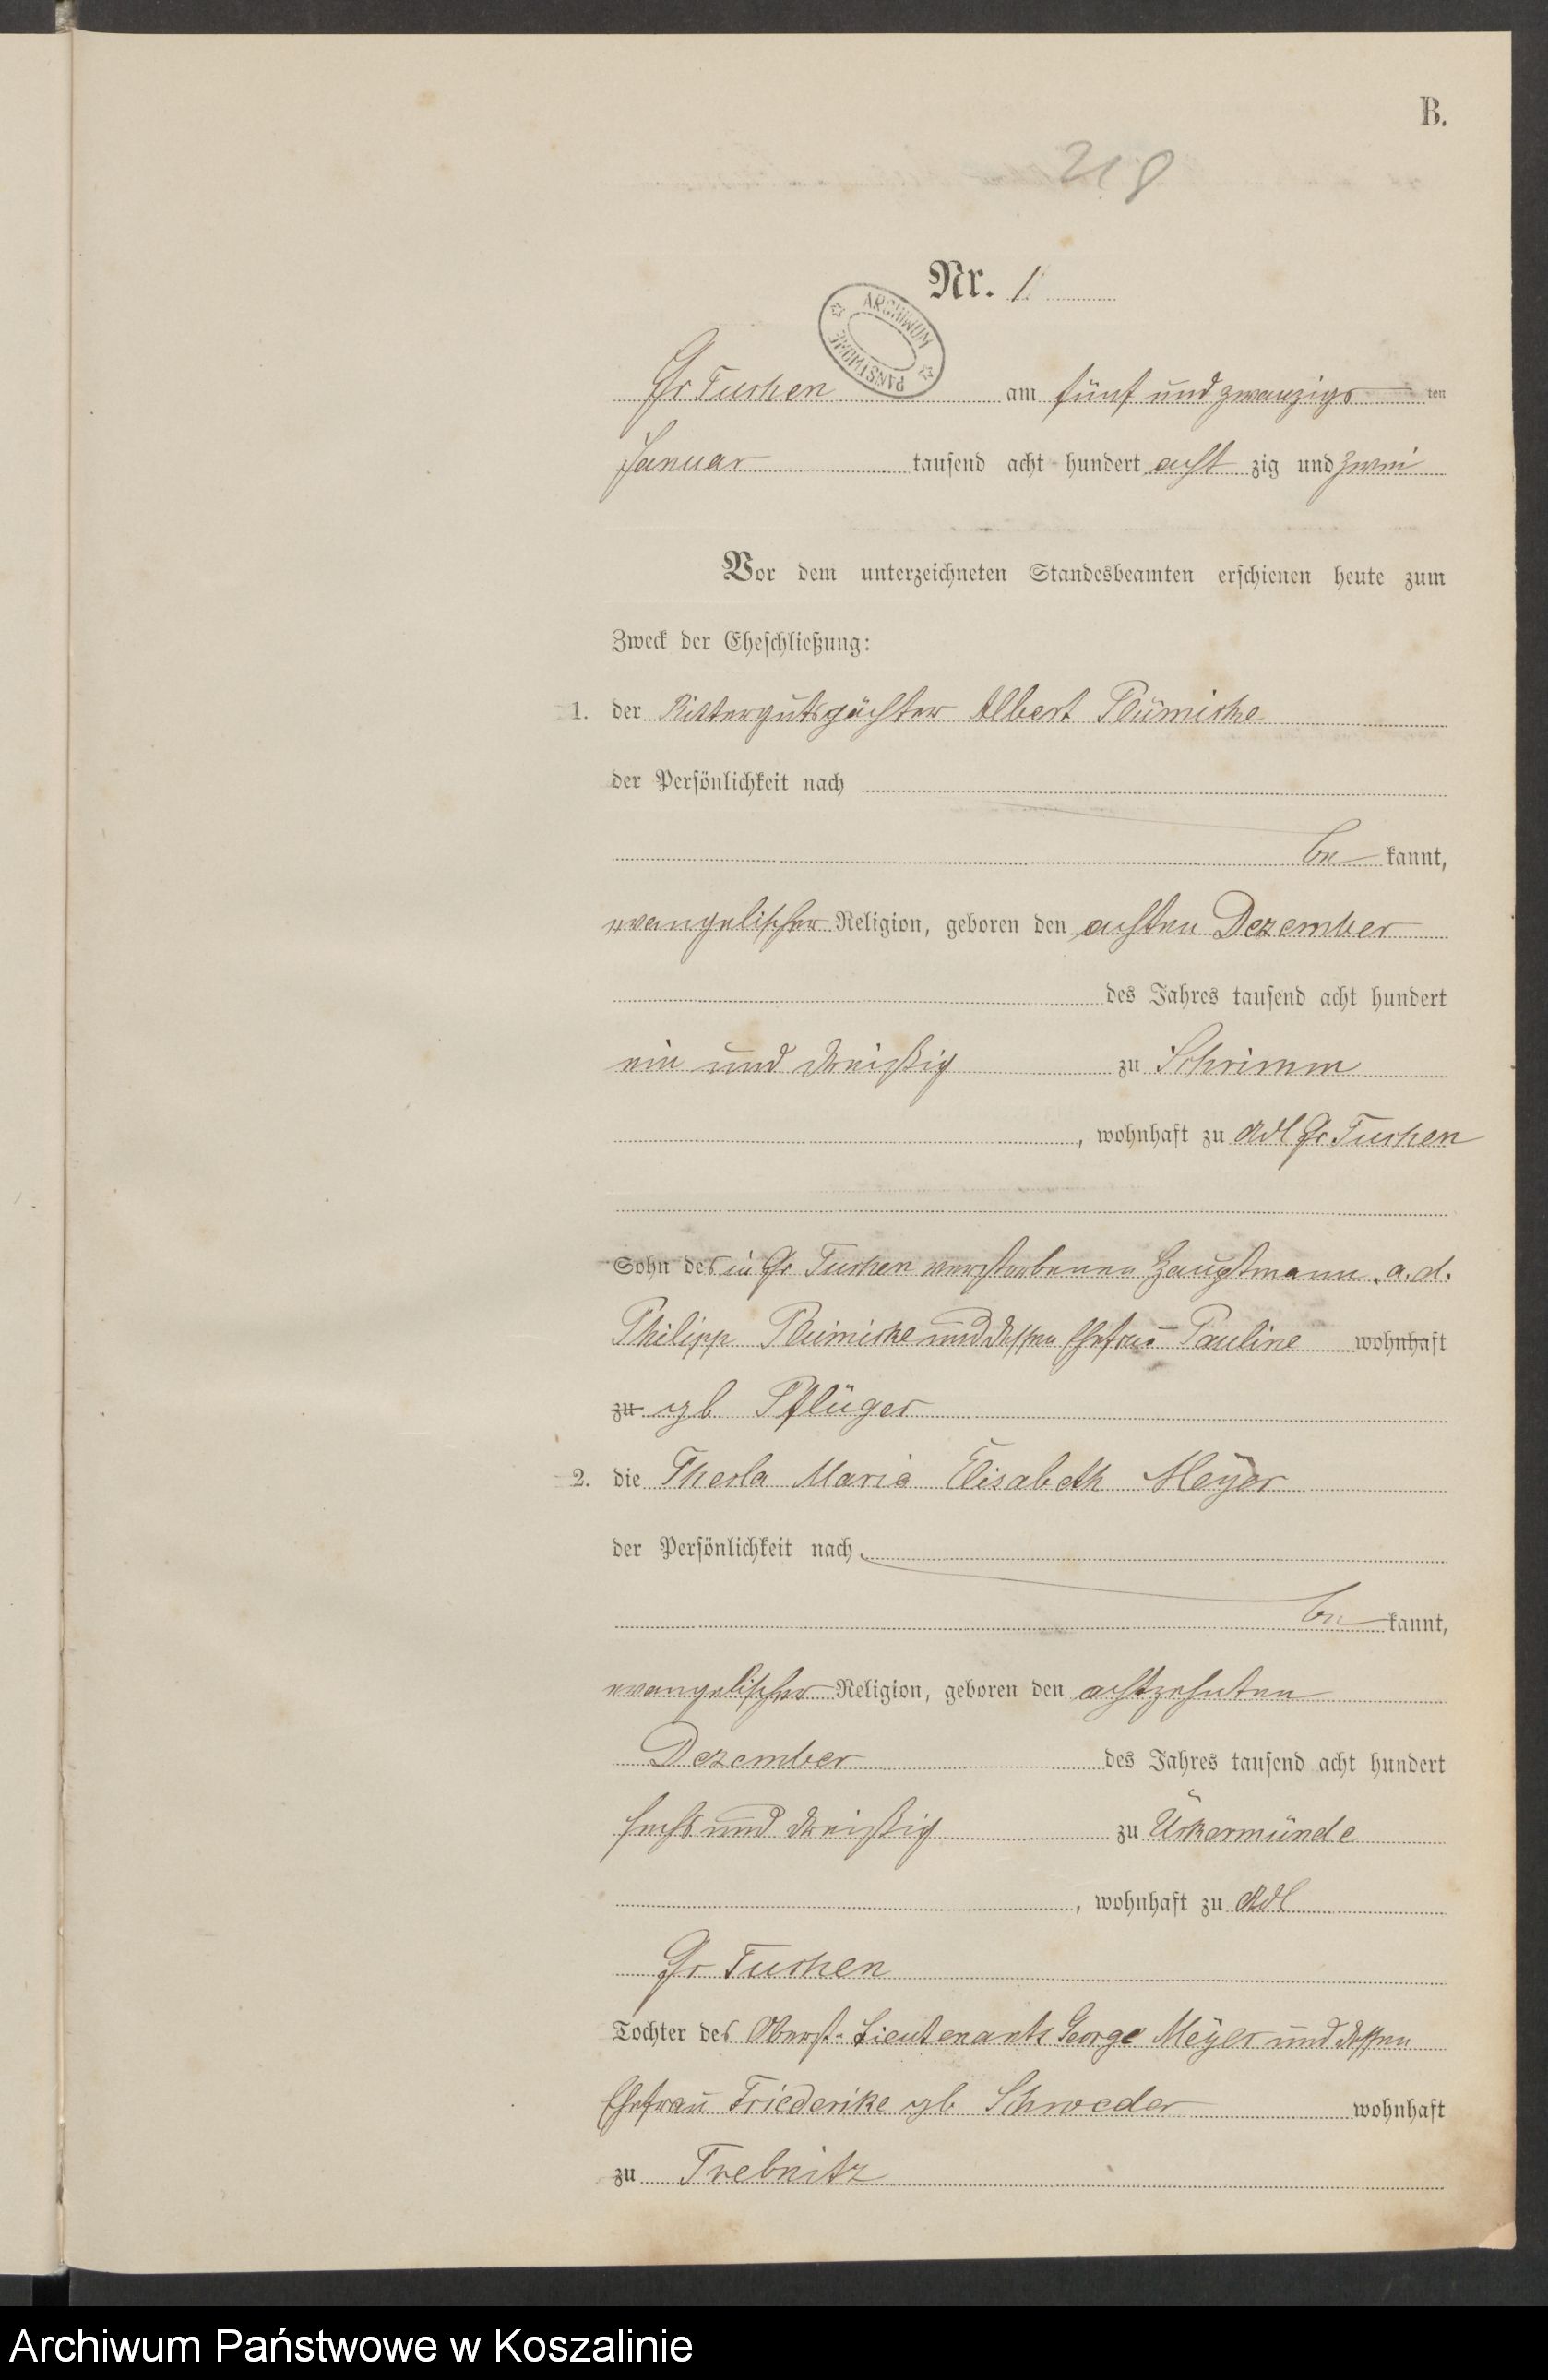 B.
218
Nr. 1
ARCHIWUM PAŃSTWOWE
Gr Tuchen am fünf und zwanzigs ten
Januar tausend acht hundert acht zig und zwei
Vor dem unterzeichneten Standesbeamten erschienen heute zum
Zweck der Eheschließung:
1. der Rittergutspächter Albert Plümicke
der Persönlichkeit nach
be kannt,
evangelischer Religion, geboren den achten Dezember
des Jahres tausend acht hundert
ein und dreißig zu Schrimm
, wohnhaft zu Adl Gr. Tuchen
Sohn des in Gr Tuchen verstorbenen Hauptmann a. d.
Philipp Plümicke und dessen Ehefrau Pauline wohnhaft
zu gb Pflüger
2. die Thecla Maria Elisabeth Meÿer
der Persönlichkeit nach
be kannt,
evangelischer Religion, geboren den achtzehnten
Dezember des Jahres tausend acht hundert
sechs und dreißig zu Ückermünde
, wohnhaft zu Adl
Gr Tuchen
Tochter des Oberst-Lieutenants George Meÿer und dessen
Ehefrau Friederike gb Schroeder wohnhaft
zu Trebnitz
Archiwum Państwowe w Koszalinie